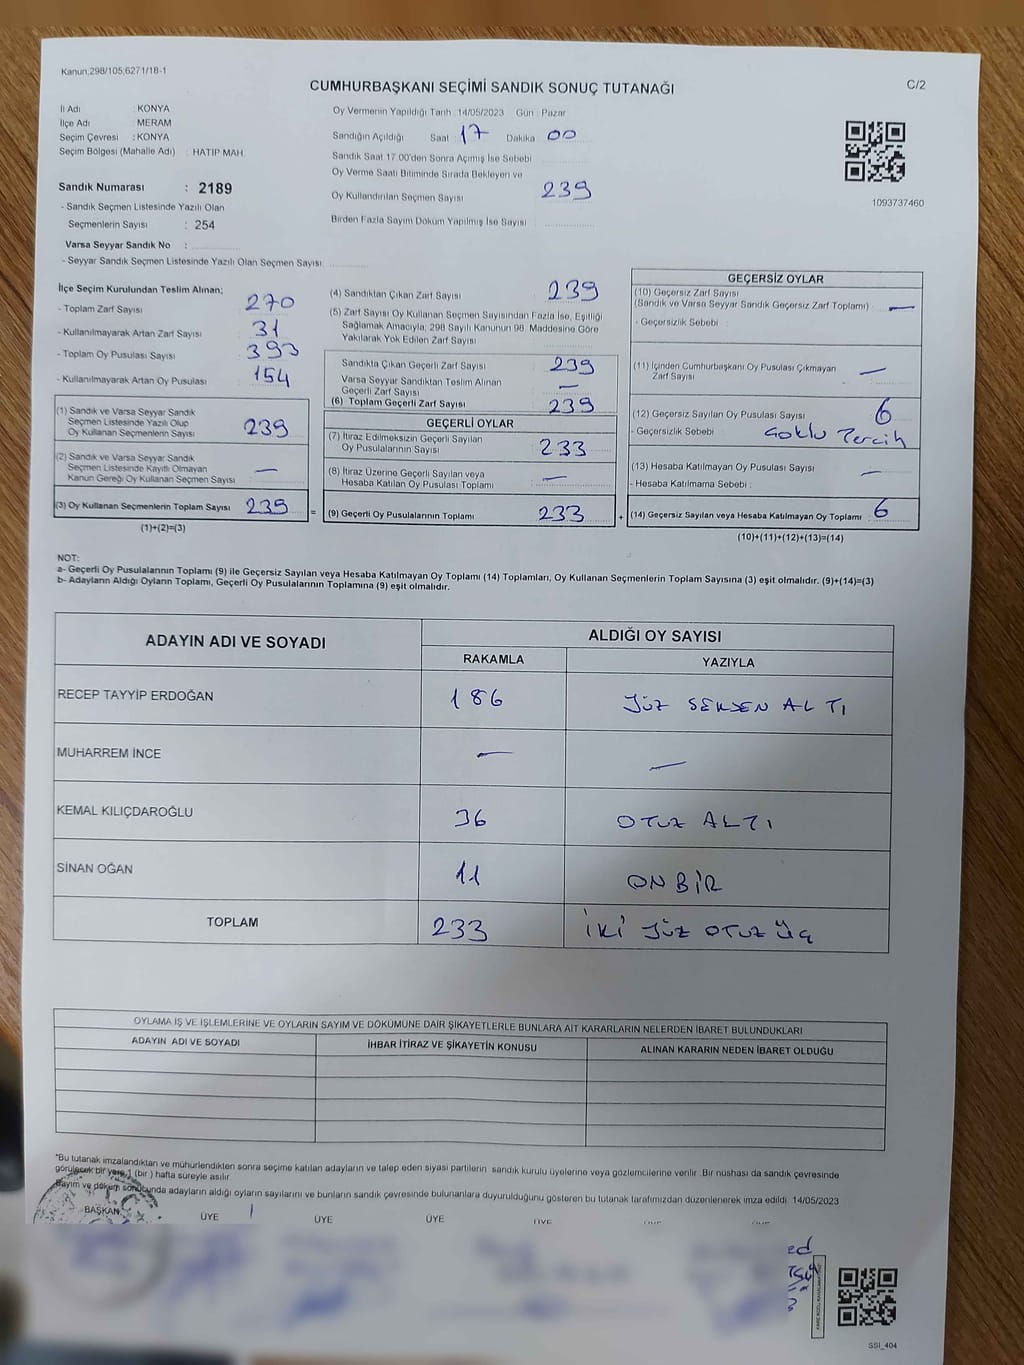 Kanun:298/105;6271/18-1
CUMHURBAŞKANI SEÇİMİ SANDIK SONUÇ TUTANAĞI
C/2
İl Adı : KONYA
İlçe Adı : MERAM
Seçim Çevresi : KONYA
Seçim Bölgesi (Mahalle Adı) : HATIP MAH.
Sandık Numarası : 2189
- Sandık Seçmen Listesinde Yazılı Olan
Seçmenlerin Sayısı : 254
Varsa Seyyar Sandık No :
- Seyyar Sandık Seçmen Listesinde Yazılı Olan Seçmen Sayısı:
Oy Vermenin Yapıldığı Tarih 14/05/2023 Gün : Pazar
Sandığın Açıldığı Saat 17 Dakika 00
Sandık Saat 17.00'den Sonra Açımış İse Sebebi
Oy Verme Saati Bitiminde Sırada Bekleyen ve
Oy Kullandırılan Seçmen Sayısı 239
Birden Fazla Sayım Döküm Yapılmış İse Sayısı :
1093737460
İlçe Seçim Kurulundan Teslim Alınan;
- Toplam Zarf Sayısı : 270
- Kullanılmayarak Artan Zarf Sayısı : 31
- Toplam Oy Pusulası Sayısı : 393
- Kullanılmayarak Artan Oy Pusulası : 154
(1) Sandık ve Varsa Seyyar Sandık
Seçmen Listesinde Yazılı Olup
Oy Kullanan Seçmenlerin Sayısı 239
(2) Sandık ve Varsa Seyyar Sandık
Seçmen Listesinde Kayıtlı Olmayan
Kanun Gereği Oy Kullanan Seçmen Sayısı —
(3) Oy Kullanan Seçmenlerin Toplam Sayısı 239
(1)+(2)=(3)
(4) Sandıktan Çıkan Zarf Sayısı 239
(5) Zarf Sayısı Oy Kullanan Seçmen Sayısından Fazla İse, Eşitliği
Sağlamak Amacıyla, 298 Sayılı Kanunun 98. Maddesine Göre
Yakılarak Yok Edilen Zarf Sayısı
Sandıkta Çıkan Geçerli Zarf Sayısı 239
Varsa Seyyar Sandıktan Teslim Alınan
Geçerli Zarf Sayısı —
(6) Toplam Geçerli Zarf Sayısı 239
GEÇERLİ OYLAR
(7) İtiraz Edilmeksizin Geçerli Sayılan
Oy Pusulalarının Sayısı : 233
(8) İtiraz Üzerine Geçerli Sayılan veya
Hesaba Katılan Oy Pusulası Toplamı —
= (9) Geçerli Oy Pusulalarının Toplamı 233 +
GEÇERSİZ OYLAR
(10) Geçersiz Zarf Sayısı
(Sandık ve Varsa Seyyar Sandık Geçersiz Zarf Toplamı) : —
- Geçersizlik Sebebi :
(11) İçinden Cumhurbaşkanı Oy Pusulası Çıkmayan
Zarf Sayısı —
(12) Geçersiz Sayılan Oy Pusulası Sayısı 6
- Geçersizlik Sebebi : Çoklu Tercih
(13) Hesaba Katılmayan Oy Pusulası Sayısı —
- Hesaba Katılmama Sebebi :
(14) Geçersiz Sayılan veya Hesaba Katılmayan Oy Toplamı 6
(10)+(11)+(12)+(13)=(14)
NOT:
a- Geçerli Oy Pusulalarının Toplamı (9) ile Geçersiz Sayılan veya Hesaba Katılmayan Oy Toplamı (14) Toplamları, Oy Kullanan Seçmenlerin Toplam Sayısına (3) eşit olmalıdır. (9)+(14)=(3)
b- Adayların Aldığı Oyların Toplamı, Geçerli Oy Pusulalarının Toplamına (9) eşit olmalıdır.
ADAYIN ADI VE SOYADI
ALDIĞI OY SAYISI
RAKAMLA YAZIYLA
RECEP TAYYİP ERDOĞAN 186 YÜZ SEKSEN ALTI
MUHARREM İNCE — —
KEMAL KILIÇDAROĞLU 36 OTUZ ALTI
SİNAN OĞAN 11 ONBİR
TOPLAM 233 İKİ YÜZ OTUZ ÜÇ
OYLAMA İŞ VE İŞLEMLERİNE VE OYLARIN SAYIM VE DÖKÜMÜNE DAİR ŞİKAYETLERLE BUNLARA AİT KARARLARIN NELERDEN İBARET BULUNDUKLARI
ADAYIN ADI VE SOYADI İHBAR İTİRAZ VE ŞİKAYETİN KONUSU ALINAN KARARIN NEDEN İBARET OLDUĞU
*Bu tutanak imzalandıktan ve mühürlendikten sonra seçime katılan adayların ve talep eden siyasi partilerin sandık kurulu üyelerine veya gözlemcilerine verilir. Bir nüshası da sandık çevresinde
görülecek bir yere 1 (bir) hafta süreyle asılır.
Sayım ve döküm sonucunda adayların aldığı oyların sayılarını ve bunların sandık çevresinde bulunanlara duyurulduğunu gösteren bu tutanak tarafımızdan düzenlenerek imza edildi. 14/05/2023
BAŞKAN ÜYE ÜYE ÜYE ÜYE
SSI_404